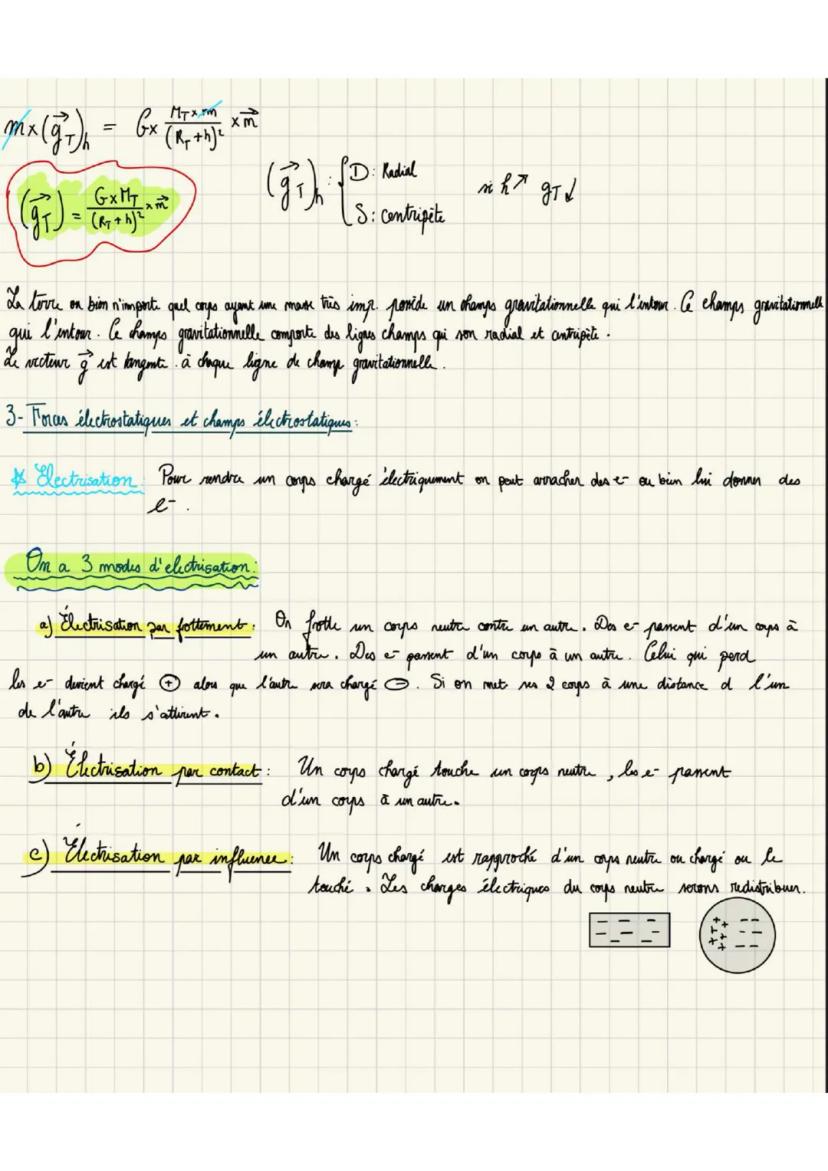 m×(g⃗_T)_h = G× M_T×m/(R_T+h)² ×m⃗
(g⃗_T) = G×M_T/(R_T+h)² ×m⃗
(g⃗_T)_h : { D: Radial
S: centripète
si h↗ g_T↓
La terre ou bien n'importe quel corps ayant une masse très imp. possède un champs gravitationnelle qui l'entour. Ce champs gravitationnelle
qui l'entour. Ce champs gravitationnelle comporte des lignes champs qui son radial et centripète.
Le vecteur g⃗ est tangente à chaque ligne de champ gravitationnelle.
3- Forces électrostatiques et champs électrostatiques:
☆ Electrisation: Pour rendre un corps chargé électriquement on peut arracher des e- ou bien lui donner des
e-.
On a 3 modes d'electrisation:
a) Électrisation par fottement: On frotte un corps neutre contre un autre. Des e- passent d'un corps à
un autre. Des e- passent d'un corps à un autre. Celui qui perd
les e- devient chargé ⊕ alors que l'autre sera chargé ⊖. Si on met ses 2 corps à une distance d l'un
de l'autre ils s'attirent.
b) Électrisation par contact: Un corps chargé touche un corps neutre, les e- passent
d'un corps à un autre.
c) Électrisation par influence: Un corps chargé est rapproché d'un corps neutre ou chargé ou le
touché. Les charges électriques du corps neutre serons redistribuer.